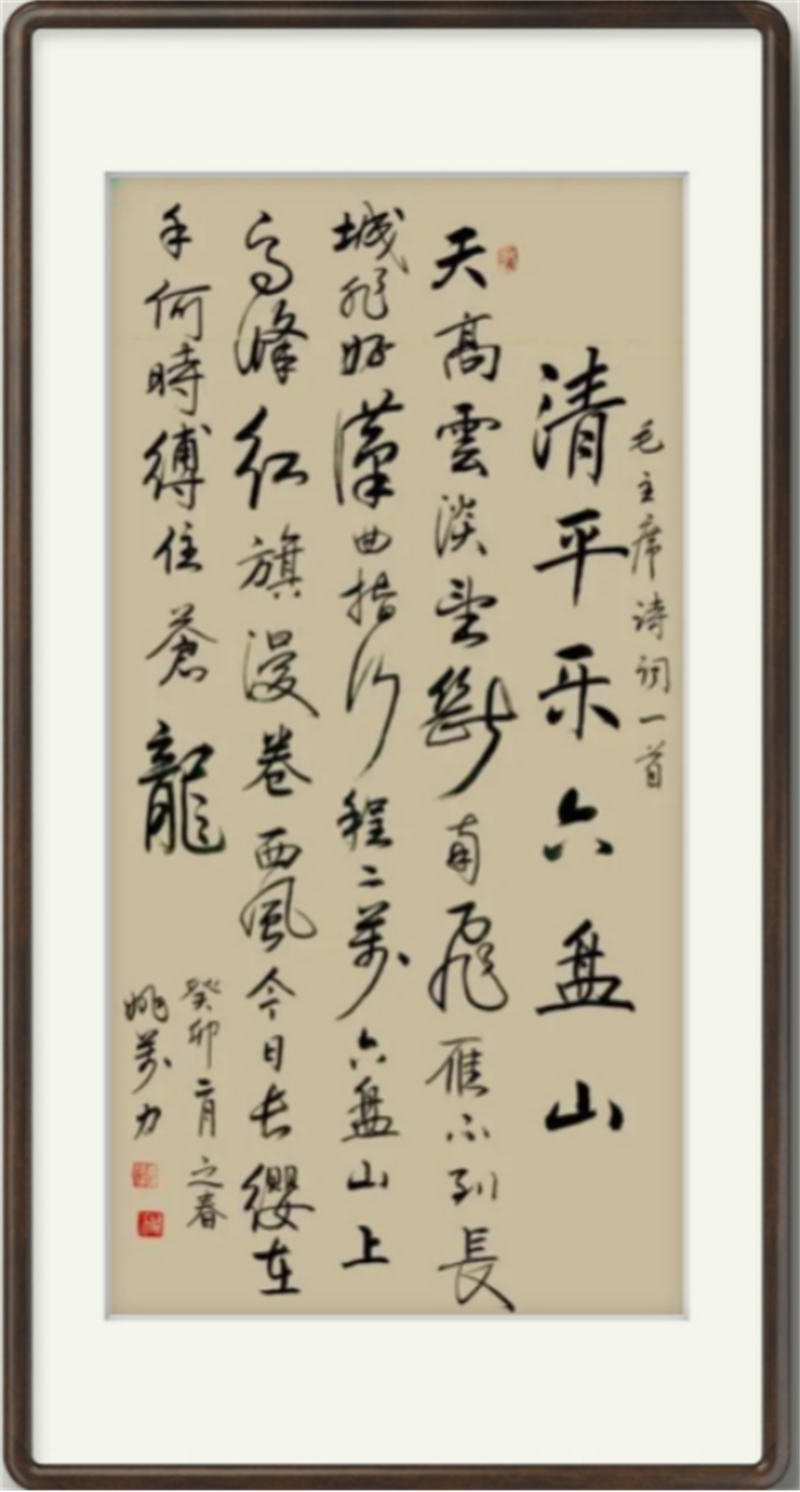 毛主席诗词一首
清平乐六盘山
天高雲淡望斷南飛雁不到長
城非好漢曲指行程二萬六盘山上
高峰红旗漫卷西風今日长缨在
手何時缚住蒼龍
癸卯二月之春
姚萬力